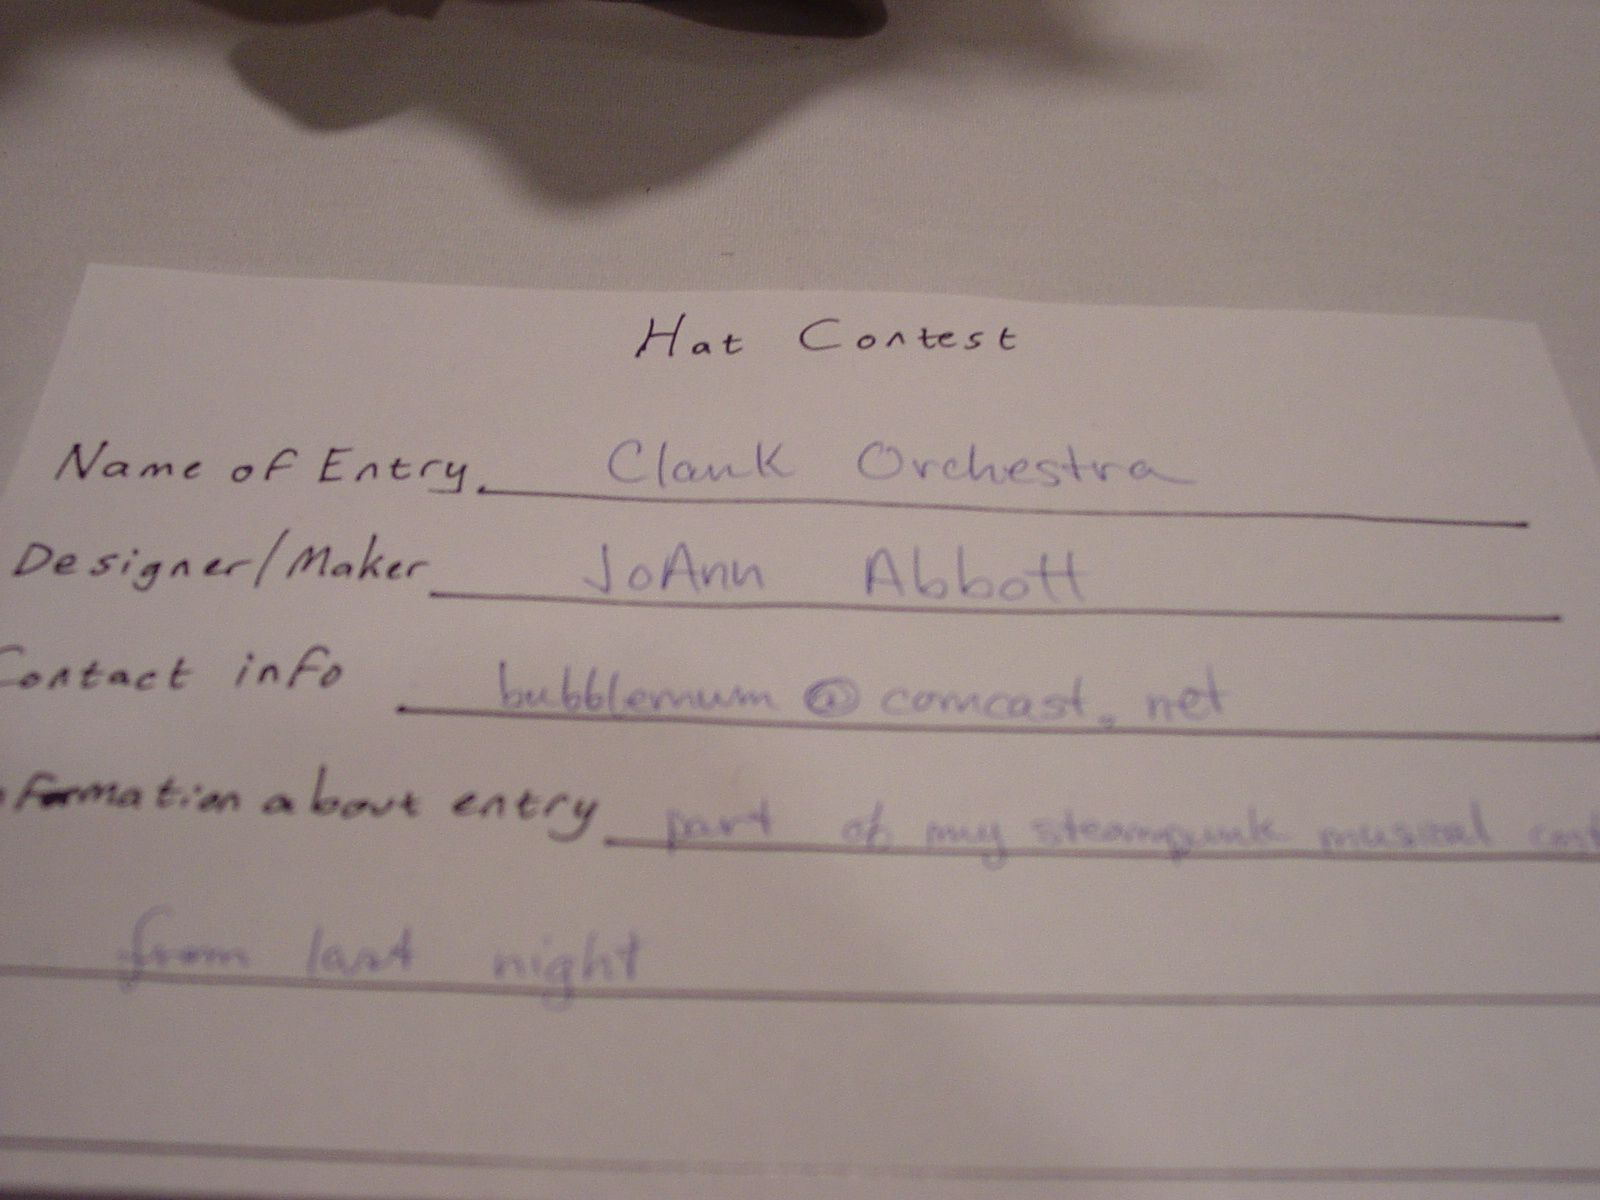 Hat Contest
Name of Entry Clank Orchestra
Designer/Maker JoAnn Abbott
Contact info bubblemum@comcast.net
formation about entry part of my steampunk musical cost
from last night